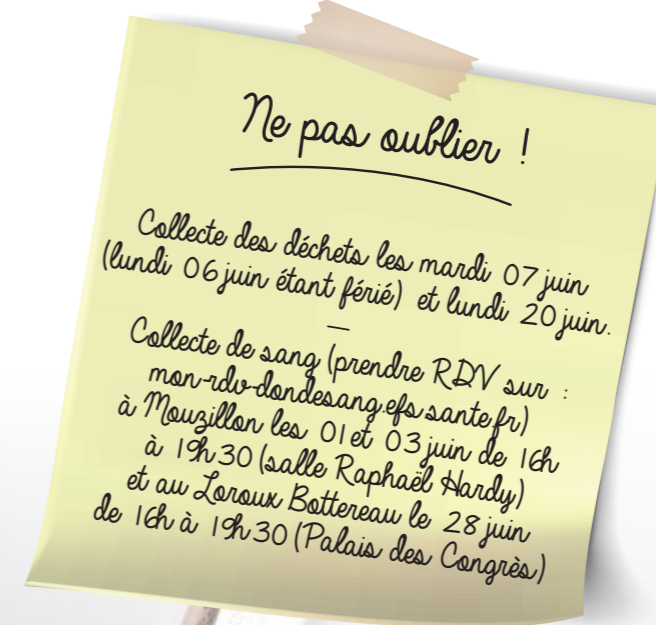 Ne pas oublier !
Collecte des déchets les mardi 07 juin
(lundi 06 juin étant férié) et lundi 20 juin.
—
Collecte de sang (prendre RDV sur :
mon-rdv-dondesang.efs.sante.fr)
à Mouzillon les 01 et 03 juin de 16h
à 19h30 (salle Raphaël Hardy)
et au Loroux Bottereau le 28 juin
de 16h à 19h30 (Palais des Congrès)